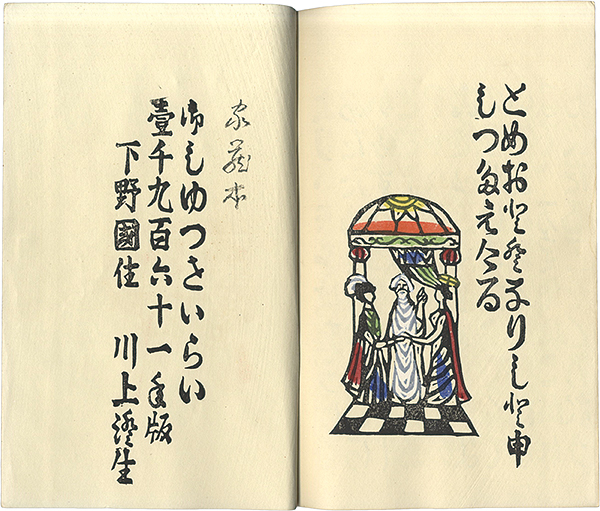 とめおとになりしと申
しつたえける
家蔵本
御しゆつさいらい
壹千九百六十一年版
下野國住 川上澄生